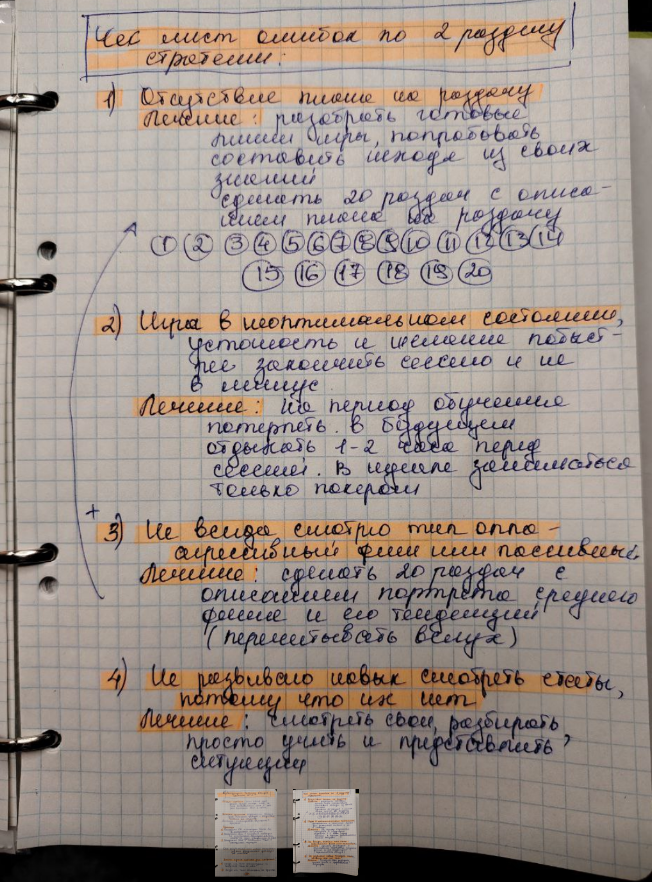 Чек лист ошибок по 2 разделу
стратегии:
1) Отсутствие плана на раздачу
Лечение: разобрать готовые
планы игры, попробовать
составить исходя из своих
знаний
сделать 20 раздач с описа-
нием плана на раздачу
1 2 3 4 5 6 7 8 9 10 11 12 13 14
15 16 17 18 19 20
2) Игра в неоптимальном состоянии,
усталость и желание побыст-
рее закончить сессию и не
в минус
Лечение: на период обучения
потерпеть. В будущем
отдыхать 1-2 часа перед
сессией. В идеале заниматься
только покером
+
3) Не всегда смотрю тип оппа-
агрессивный фиш или пассивный.
Лечение: сделать 20 раздач с
описанием портрета среднего
фиша и его тенденций
(перечитывать вслух)
4) Не развиваю навык смотреть статы,
потому что их нет
Лечение: смотреть свои, разбирать,
просто учить и представлять
ситуации